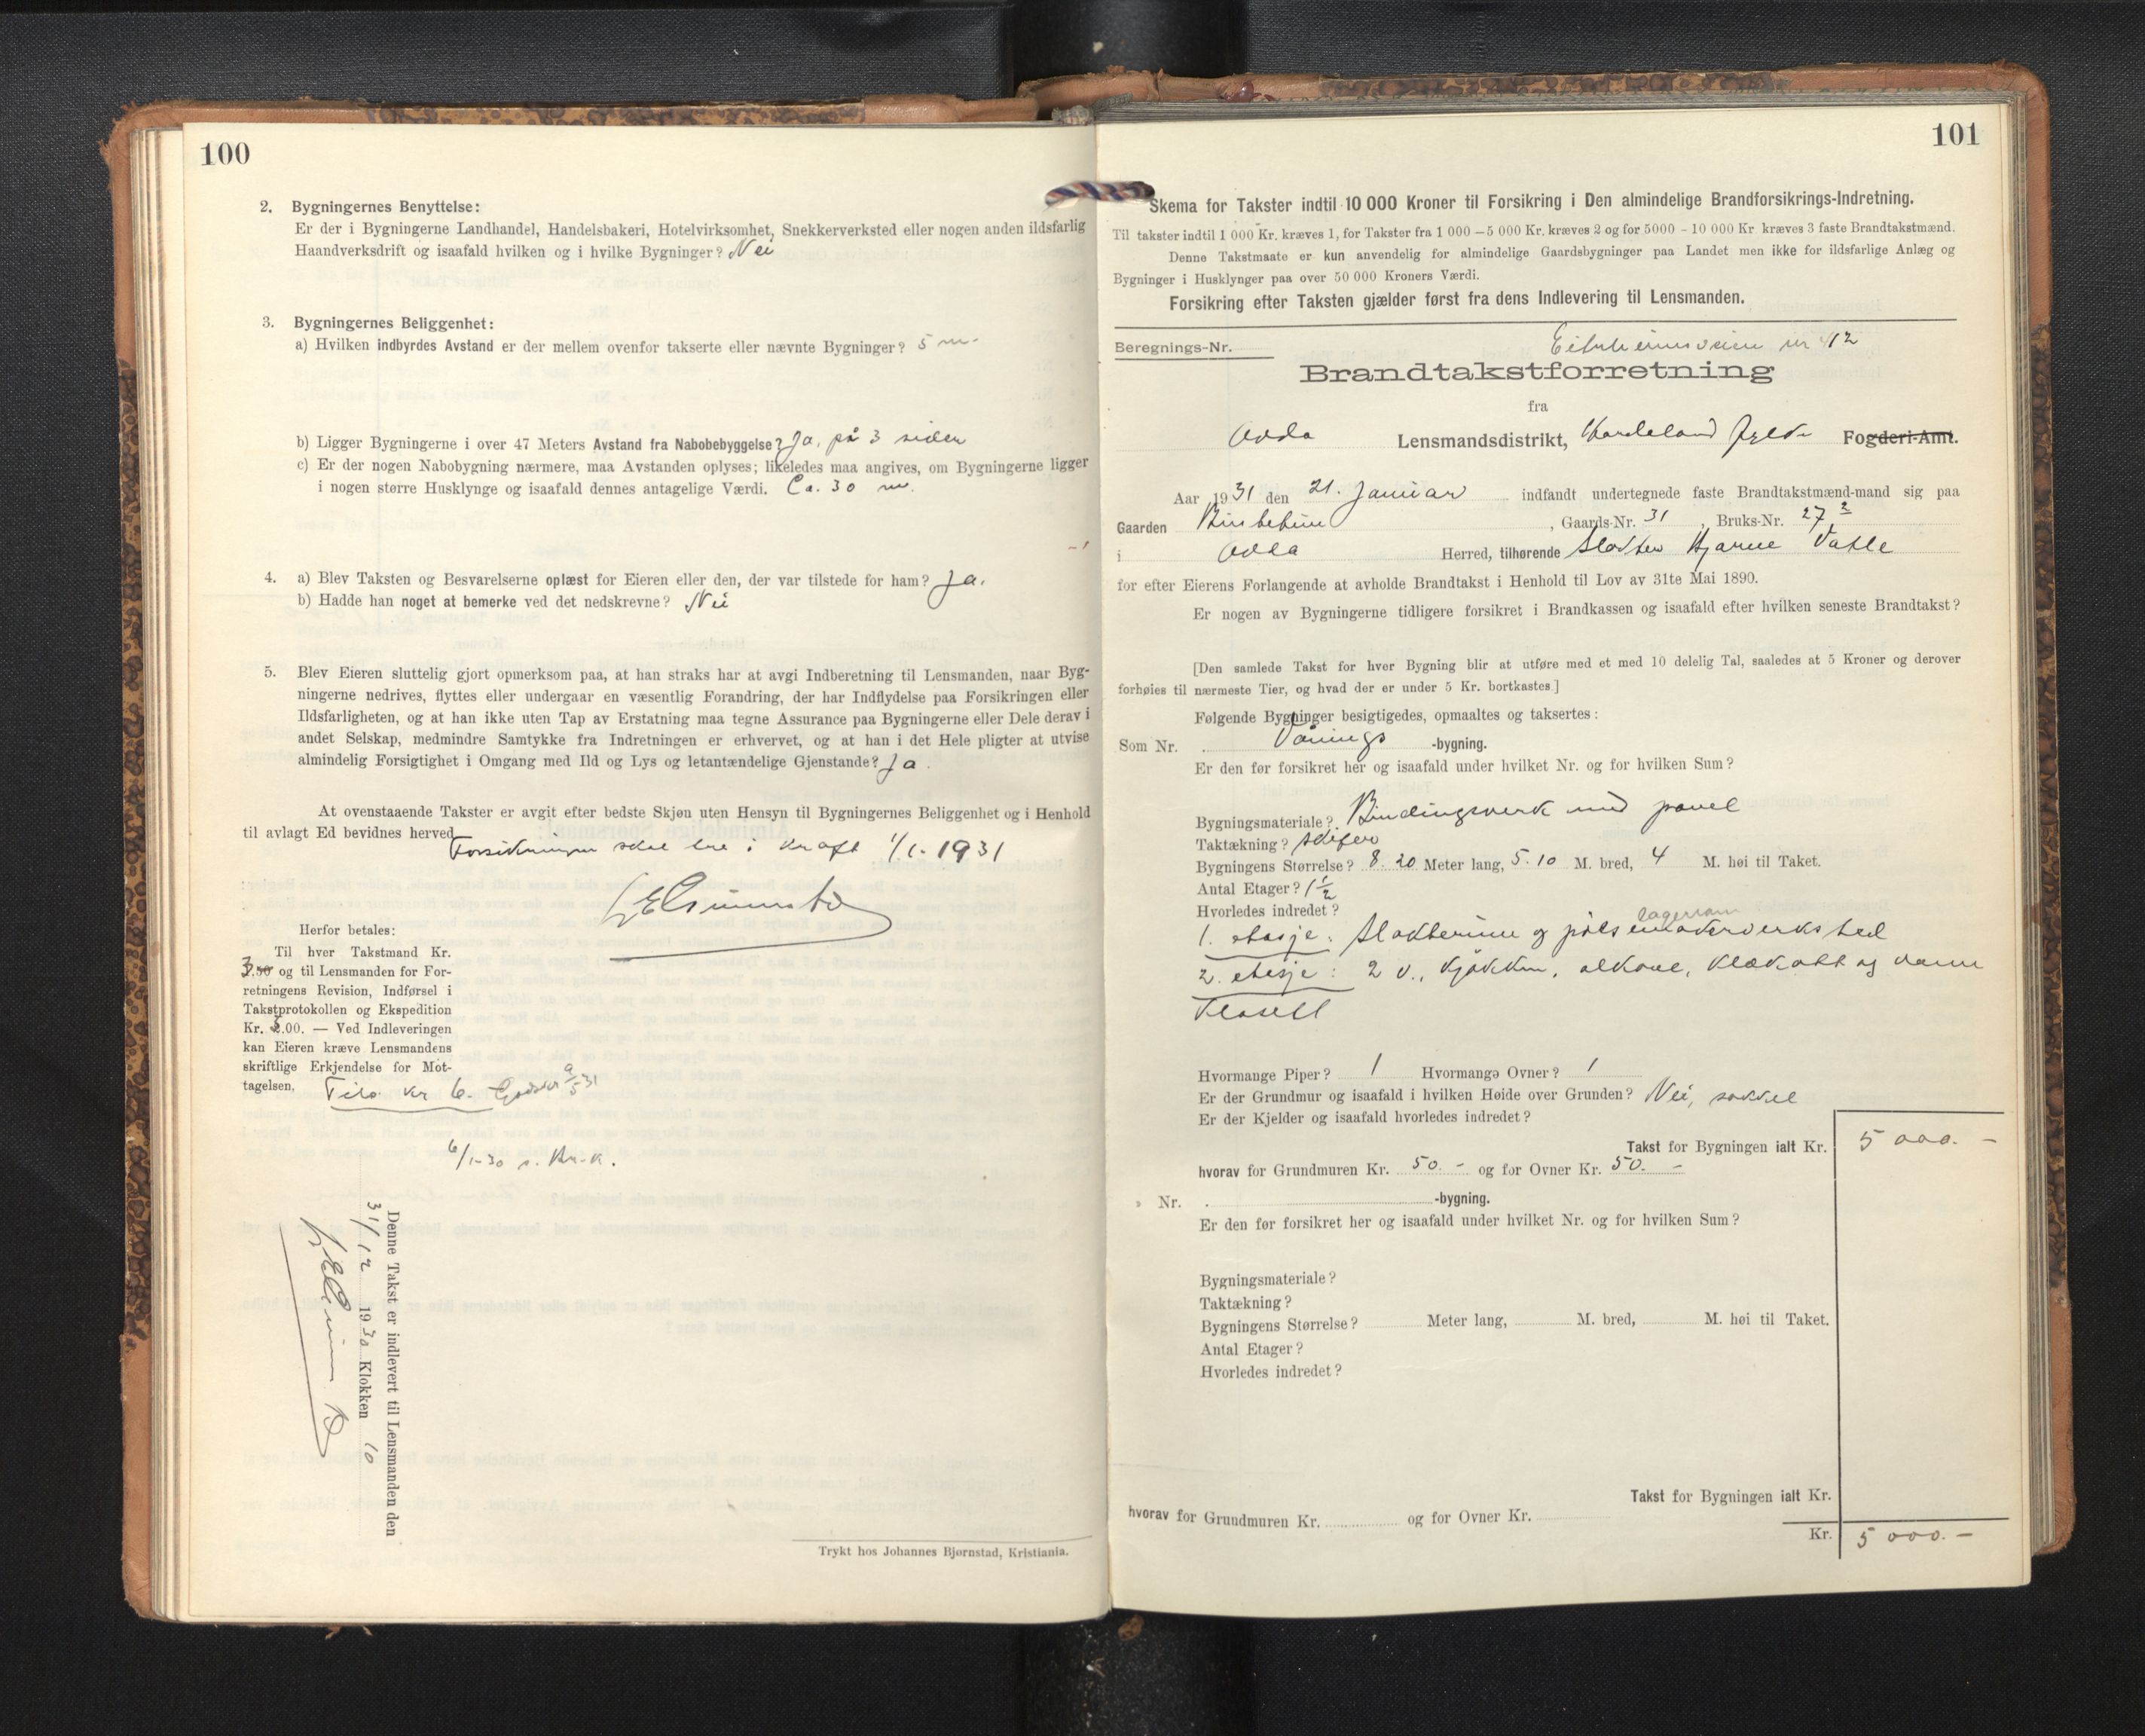 100
2. Bygningernes Benyttelse:
Er der i Bygningerne Landhandel, Handelsbakeri, Hotelvirksomhet, Snekkerverksted eller nogen anden ildsfarlig
Haandverksdrift og isaafald hvilken og i hvilke Bygninger? Nei
3. Bygningernes Beliggenhet:
a) Hvilken indbyrdes Avstand er der mellem ovenfor takserte eller nævnte Bygninger? 5 m.
b) Ligger Bygningerne i over 47 Meters Avstand fra Nabobebyggelse? Ja, på 3 sider
c) Er der nogen Nabobygning nærmere, maa Avstanden oplyses; likeledes maa angives, om Bygningerne ligger
i nogen større Husklynge og isaafald dennes antagelige Værdi. Ca. 30 m.
4. a) Blev Taksten og Besvarelserne oplæst for Eieren eller den, der var tilstede for ham? Ja.
b) Hadde han noget at bemerke ved det nedskrevne? Nei
5. Blev Eieren sluttelig gjort opmerksom paa, at han straks har at avgi Indberetning til Lensmanden, naar Byg-
ningerne nedrives, flyttes eller undergaar en væsentlig Forandring, der har Indflydelse paa Forsikringen eller
Ildsfarligheten, og at han ikke uten Tap av Erstatning maa tegne Assurance paa Bygningerne eller Dele derav i
andet Selskap, medmindre Samtykke fra Indretningen er erhvervet, og at han i det Hele pligter at utvise
almindelig Forsigtighet i Omgang med Ild og Lys og letantændelige Gjenstande? Ja.
At ovenstaaende Takster er avgit efter bedste Skjøn uten Hensyn til Bygningernes Beliggenhet og i Henhold
til avlagt Ed bevidnes herved
Forsikringen skal tre i kraft 1/1-1931
Herfor betales:
Til hver Takstmand Kr.
3.50 og til Lensmanden for For-
retningens Revision, Indførsel i
Takstprotokollen og Ekspedition
Kr. 2.00. — Ved Indleveringen
kan Eieren kræve Lensmandens
skriftlige Erkjendelse for Mot-
tagelsen.
kr 6.- 9/5 31
6/1-30
Denne Takst er indlevert til Lensmanden den
31/12 1930 Klokken 10
Trykt hos Johannes Bjørnstad, Kristiania.
101
Skema for Takster indtil 10 000 Kroner til Forsikring i Den almindelige Brandforsikrings-Indretning.
Til takster indtil 1 000 Kr. kræves 1, for Takster fra 1 000 – 5 000 Kr. kræves 2 og for 5000 – 10 000 Kr kræves 3 faste Brandtakstmænd.
Denne Takstmaate er kun anvendelig for almindelige Gaardsbygninger paa Landet men ikke for ildsfarlige Anlæg og
Bygninger i Husklynger paa over 50 000 Kroners Værdi.
Forsikring efter Taksten gjælder først fra dens Indlevering til Lensmanden.
Beregnings-Nr. Eitrheimsveien nr 12
Brandtakstforretning
fra
Odda Lensmandsdistrikt, Hordaland fylke Fogderi-Amt.
Aar 1931 den 21. Januar indfandt undertegnede faste Brandtakstmænd-mand sig paa
Gaarden , Gaards-Nr. 31 , Bruks-Nr. 27
i Odda Herred, tilhørende slakter Bjarne
for efter Eierens Forlangende at avholde Brandtakst i Henhold til Lov av 31te Mai 1890.
Er nogen av Bygningerne tidligere forsikret i Brandkassen og isaafald efter hvilken seneste Brandtakst?
[Den samlede Takst for hver Bygning blir at utføre med et med 10 delelig Tal, saaledes at 5 Kroner og derover
forhøies til nærmeste Tier, og hvad der er under 5 Kr. bortkastes.]
Følgende Bygninger besigtigedes, opmaaltes og taksertes:
Som Nr. Vånings -bygning.
Er den før forsikret her og isaafald under hvilket Nr. og for hvilken Sum?
Bygningsmateriale? Bindingsverk med panel
Taktækning? skifer
Bygningens Størrelse? 8.20 Meter lang, 5.10 M. bred, 4 M. høi til Taket.
Antal Etager? 1 1/2
Hvorledes indredet?
lagerrom
1. etasje: slakterium og pølsemakerverksted
2. etasje: 2 v., kjøkken, alkove, klækott og vann
klosett
Hvormange Piper? 1 Hvormange Ovner? 1
Er der Grundmur og isaafald i hvilken Høide over Grunden? Nei, sokkel
Er der Kjelder og isaafald hvorledes indredet?
Takst for Bygningen ialt Kr. 5 000.-
hvorav for Grundmuren Kr. 50.- og for Ovner Kr. 50.-
» Nr. -bygning.
Er den før forsikret her og isaafald under hvilket Nr. og for hvilken Sum?
Bygningsmateriale?
Taktækning?
Bygningens Størrelse? Meter lang, M. bred, M. høi til Taket.
Antal Etager?
Hvorledes indredet?
Takst for Bygningen ialt Kr.
hvorav for Grundmuren Kr. og for Ovner Kr.
Kr. 5 000.-